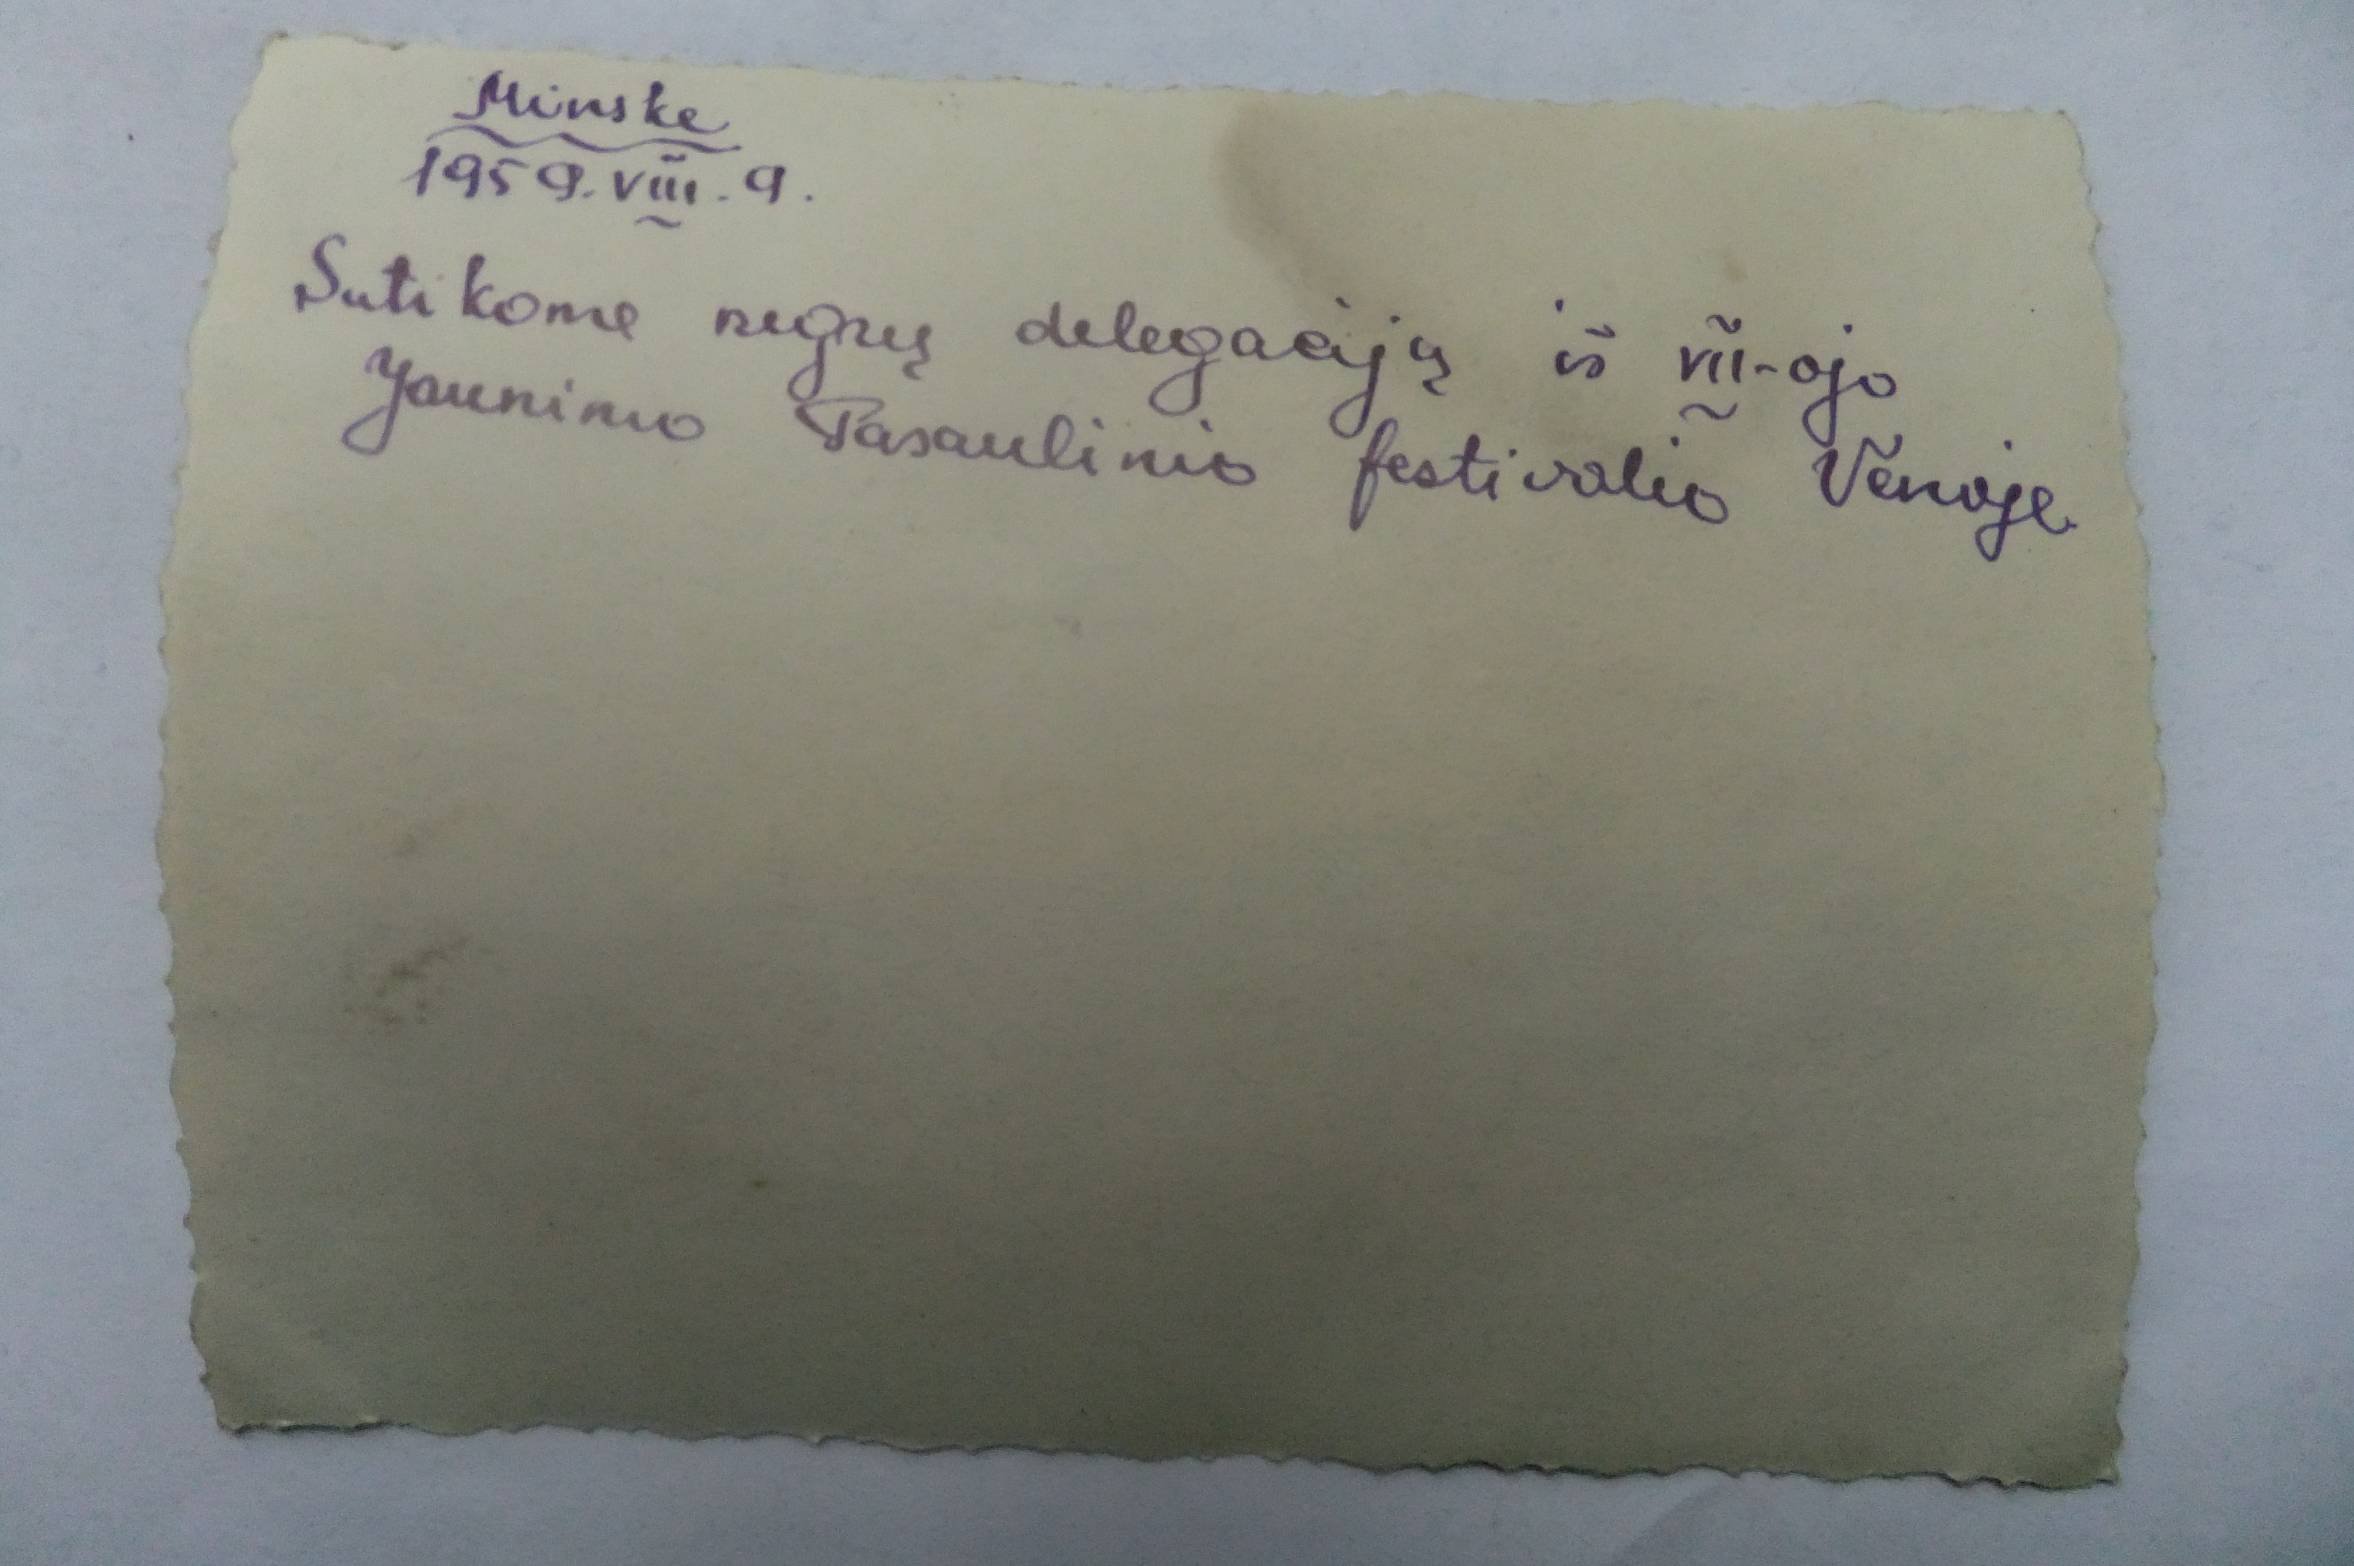 Minske
1959.VIII.9.
Sutikome negrų delegaciją iš VII-ojo
Jaunimo Pasaulinio festivalio Vēnoje